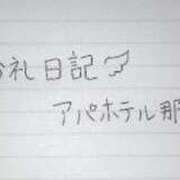 お礼日記
アパホテル那